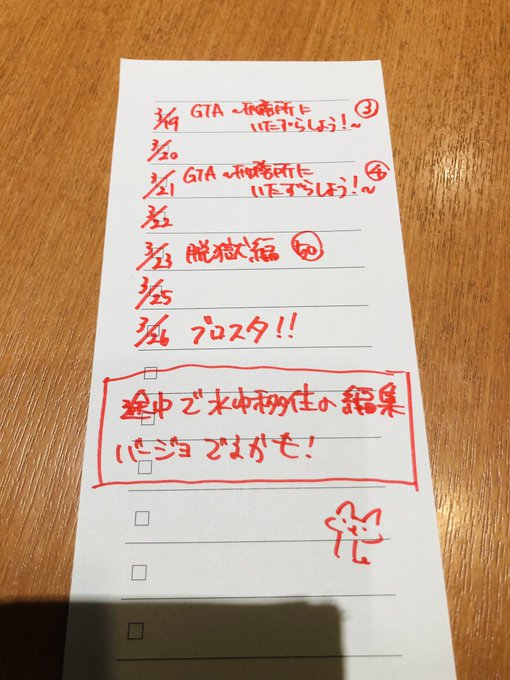 3/19 GTA ~刑務所に ③
いたずらしよう!~
3/20
3/21 GTA ~刑務所に ④
いたずらしよう!~
3/22
3/23 脱獄編
3/25
3/26 ブロスタ!!
途中で水中移住の編集
バージョでるかも!